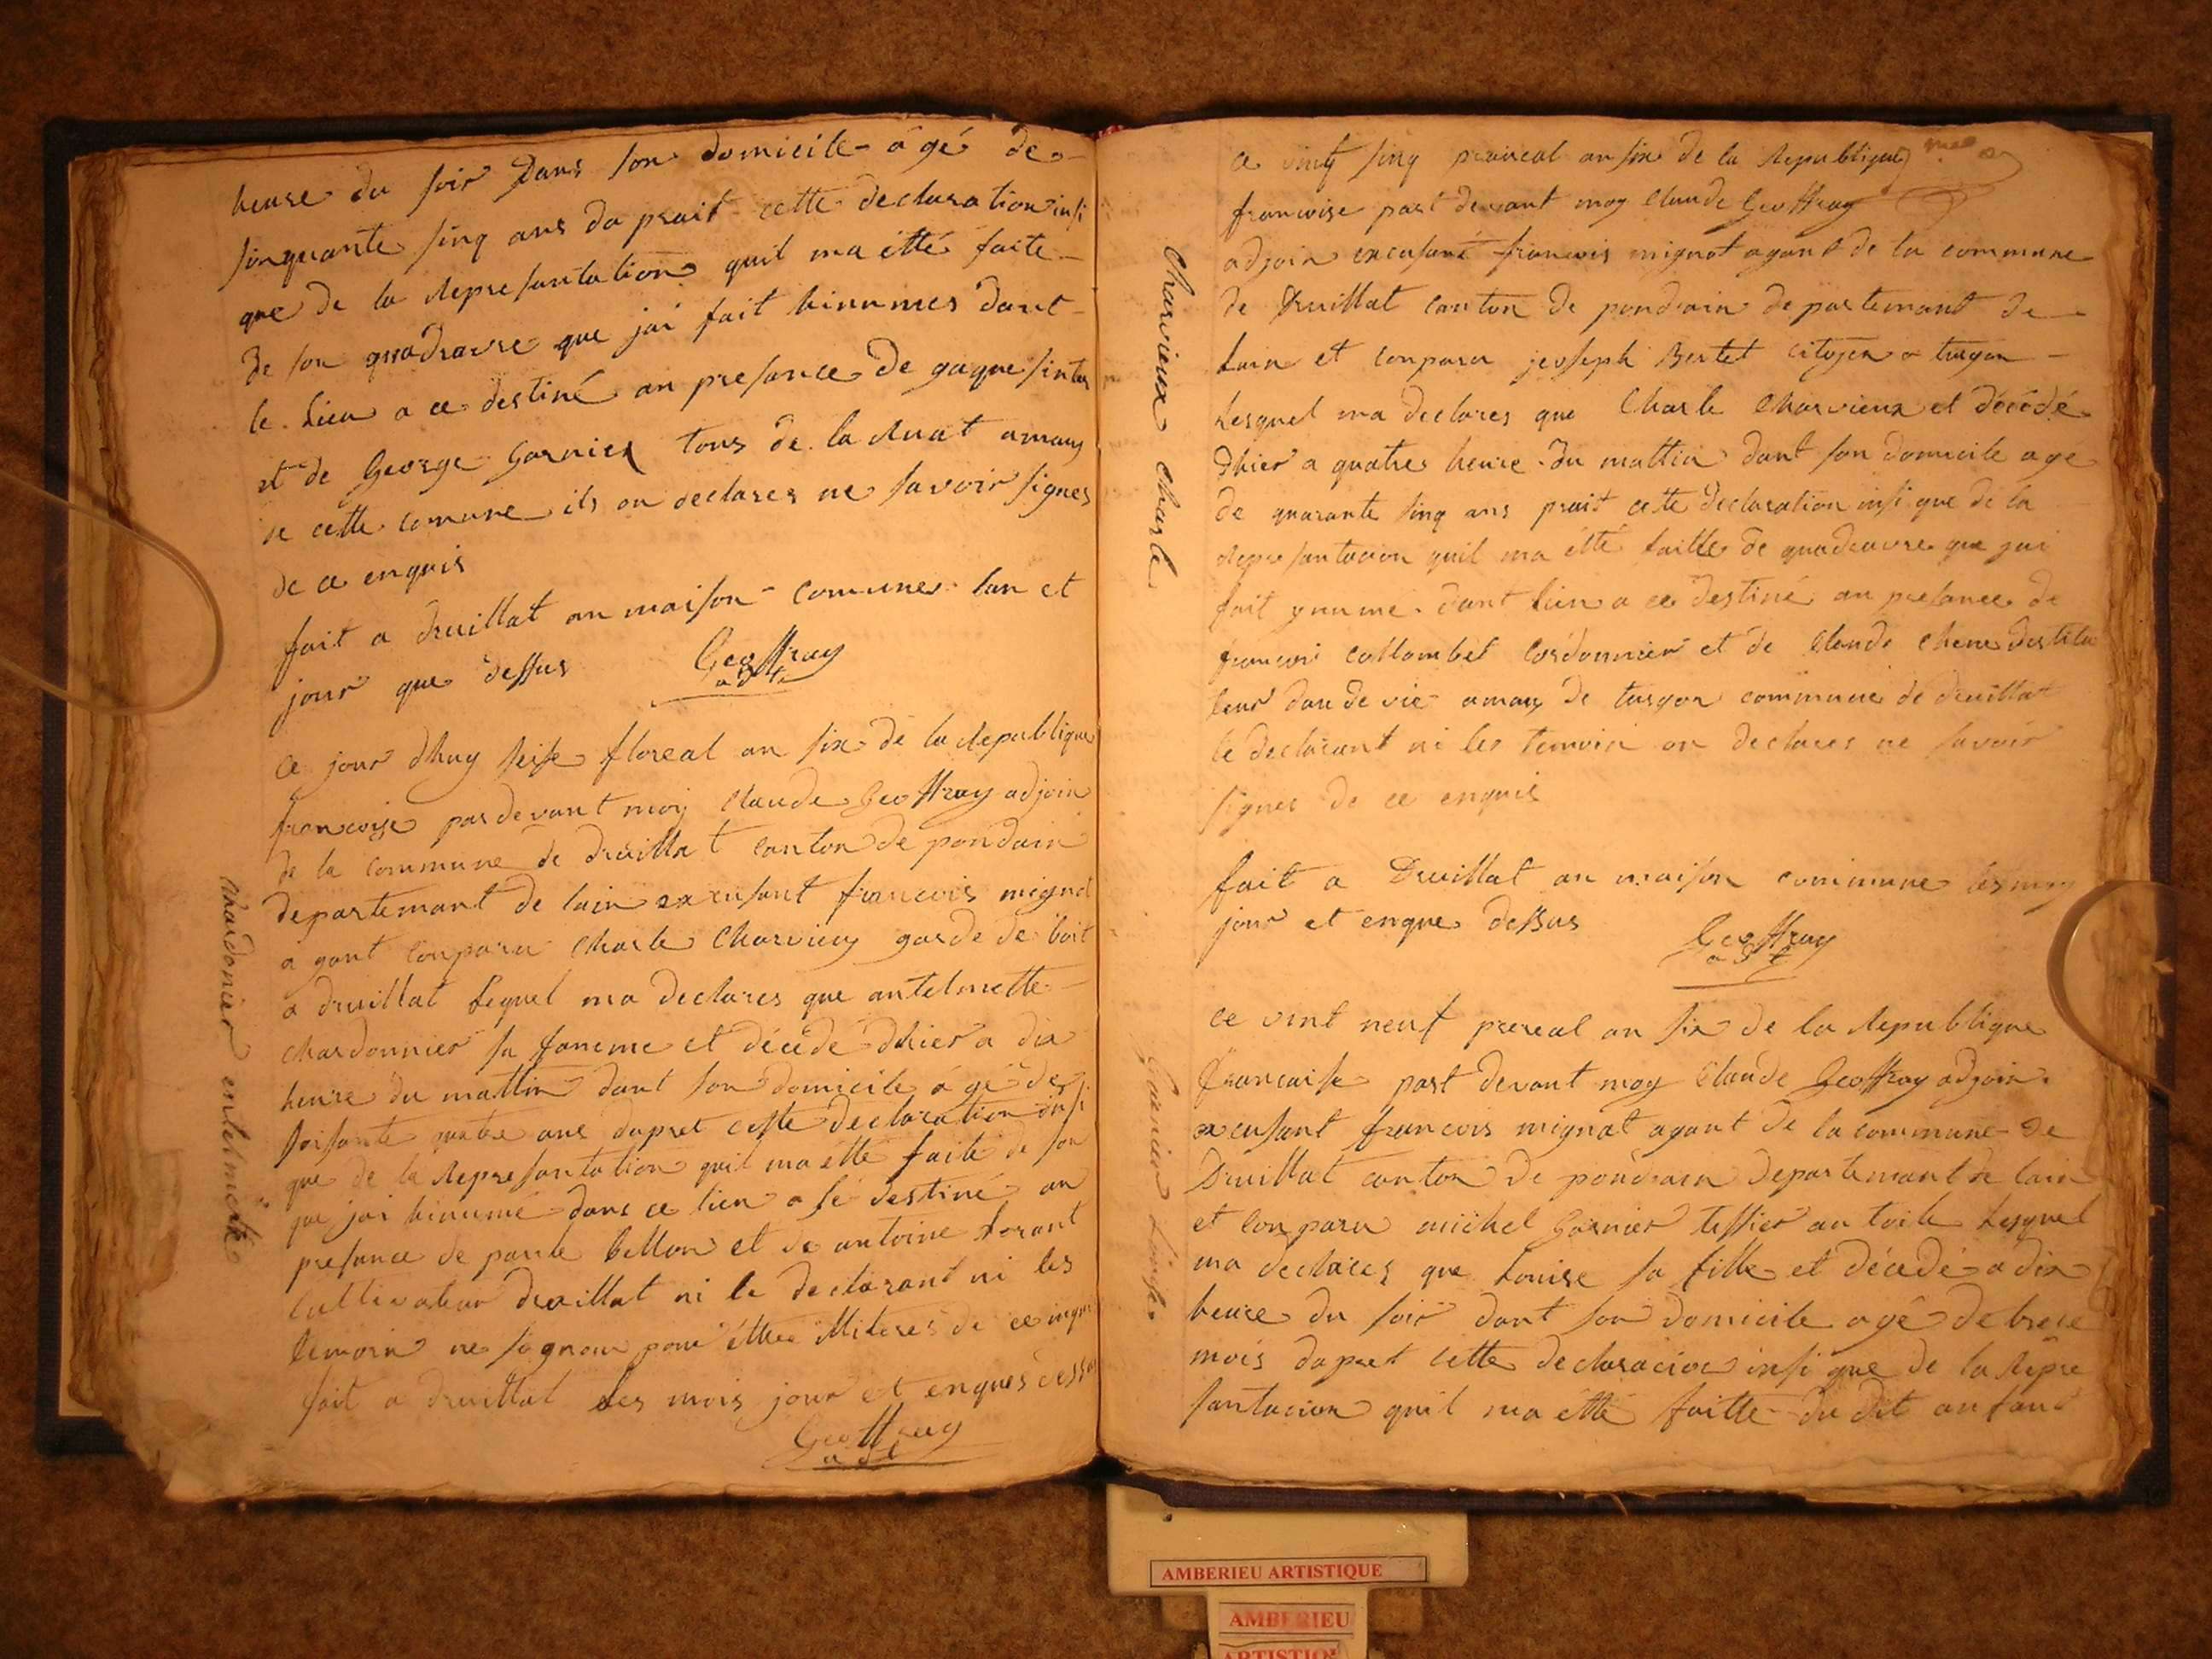 heure du soir Dans son domicile âgé de
sinquante sinq ans da prait cette declaration insi
que de la Represantation quil ma étté faite
de son quadravre que jai fait hinumes dant
le Lieu a ce destiné an presance de
et de George Garnier tous de la Ruat amaux
de cette comune ils on declares ne savoir signes
de ce enquis
fait a druillat an maison comune lan et
jour que dessus Geoffray
adt
Ce jour dhuy seise floreal an six de la Republique
francoise pardevant moy Claude Geoffray adjoin
de la commune de druillat canton de pondain
departemant de lain exxcusant francois mignot
agant conparu Charle Charvieux garde de boit
a druillat Lequel ma declares que antelmette
chardonnier sa famme et décédé dhier a dix
heure du mattin dant son domicile âgé de
soisante quatre ans dapret cette declaration insi
que de la Represantation quil ma étté faite de son
que jai hinumé dans ce lieu a sé destiné an
presance de bellon et de antoine
Cultivateur druillat ni le declarant ni les
temoin ne signon pour éttre illiteres de ce inquis
fait a druillat Les mois jour et enques dessus
Geoffray
adt
chardonnier entelmette
ce vintq sinq preireal an six de la Republique
francoise part devant moy Claude Geoffray
adjoin excusant francois mignot agant de la commune
de Druillat canton de pondain departemant de
Lain et conparu jeoseph Bertet citoyen a turgon
Lesquel ma declares que Charle Charvieux et décédé
dhier a quatre heure du mattin dant son domicile age
de quarante sinq ans prait cette declaration insi que de la
represantacion quil ma étté faitte de quadravre que jai
fait ynumé dant lieu a ce destiné an presance de
francois collombet Cordonnier et de Claude chene distila
teur dau de vie amaux de turgon commune de druillat
le declarant ni les temoin on declares ne savoir
signes de ce enquis
fait a Druillat an maison commune les moy
jour et enque dessus Geoffray
adt
Charvieux Charle
Ce vint neuf prereal an six de la Republique
francaise part devant moy Claude Geoffray adjoin
excusant francois mignot agant de la commune de
Druillat canton de pondain departemant de lain
et conparu michel Garnier tessier an toile Lesquel
ma declares que Louise sa fille et décédé a dix
heure du soir dant son domicile agé de treze
mois dapret cette declaracion insi que de la Repre
santacion quil ma étté faitte du dit anfant
Garnier Louise
AMBERIEU ARTISTIQUE
AMBERIEU
ARTISTIQ